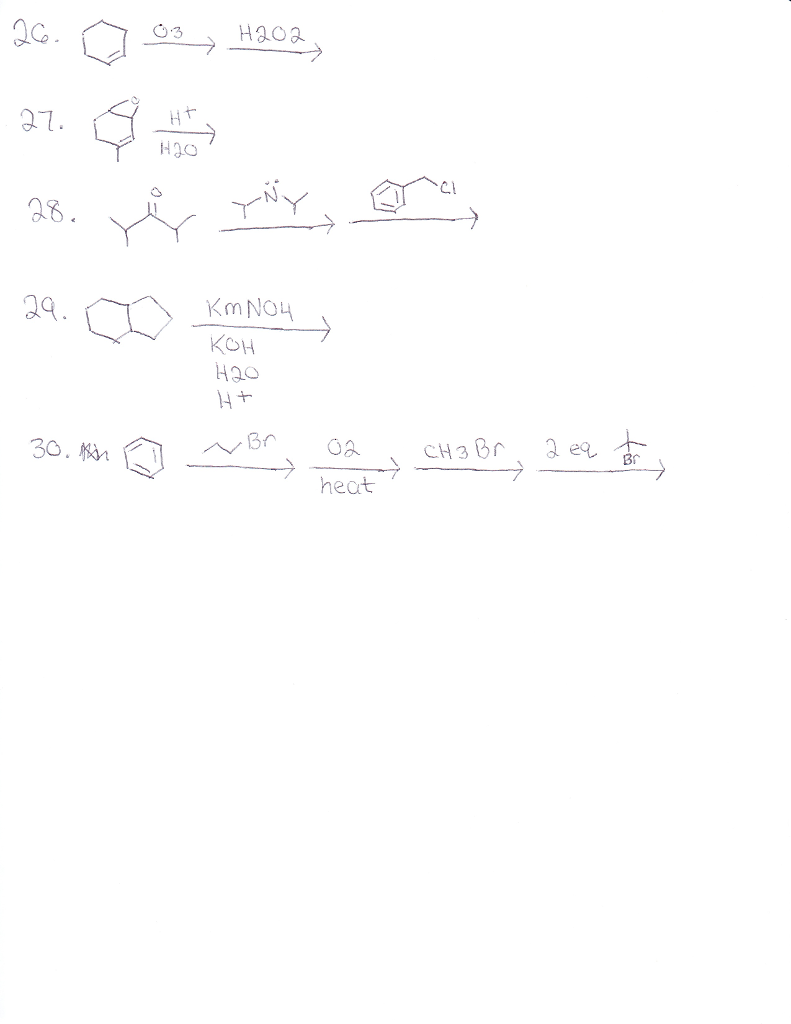 26. O3 H2O2
27. O H+
H2O
28. O N Cl
29. KmNO4
KOH
H2O
H+
30. Br O2 CH3Br 2 eq Br
heat